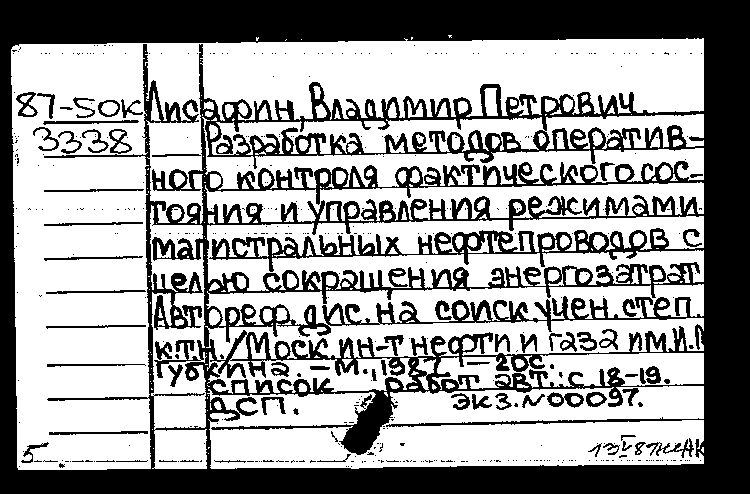 87-50к Лисафин, Владимир Петрович.
3338 Разработка методов оператив-
ного контроля фактического сос-
тояния и управления режимами
магистральных нефтепроводов с
целью сокращения энергозатрат
Автореф. дис. на соиск. учен. степ.
к.т.н. / Моск. ин-т нефти и газа им. И.М
Губкина. – М., 1987. – 20с.
список работ авт.: с. 18-19.
ДСП. экз. N 00097.
5. 13 V 87